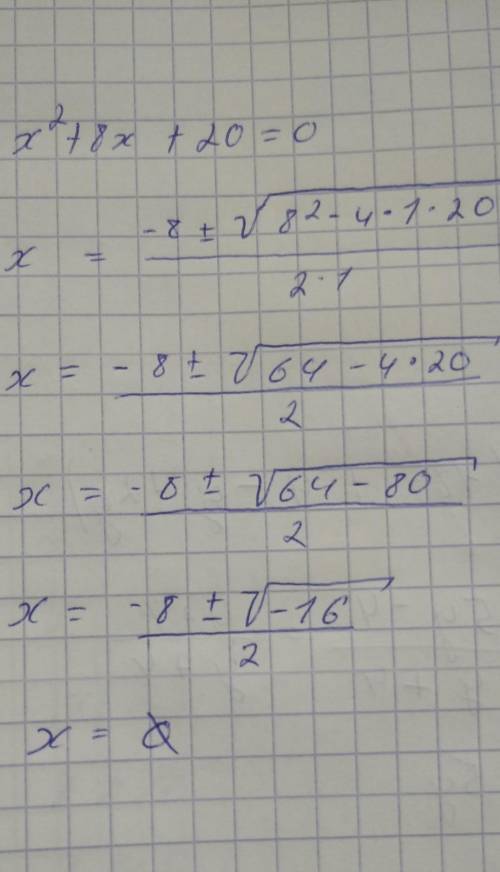 x² + 8x + 20 = 0
x = (-8 ± √(8² - 4 · 1 · 20)) / (2 · 1)
x = (-8 ± √(64 - 4 · 20)) / 2
x = (-8 ± √(64 - 80)) / 2
x = (-8 ± √(-16)) / 2
x = ∅